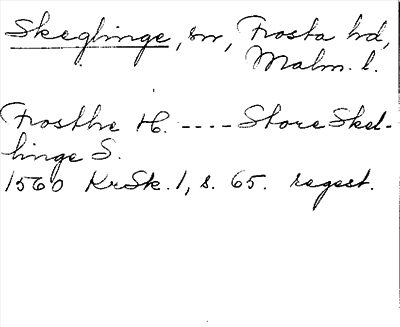 Skeglinge, sn, Frosta hd,
Malm. l.
Frosthr H. ---- Store Skel-
linge S.
1560 KrSk. 1, s. 65. regest.